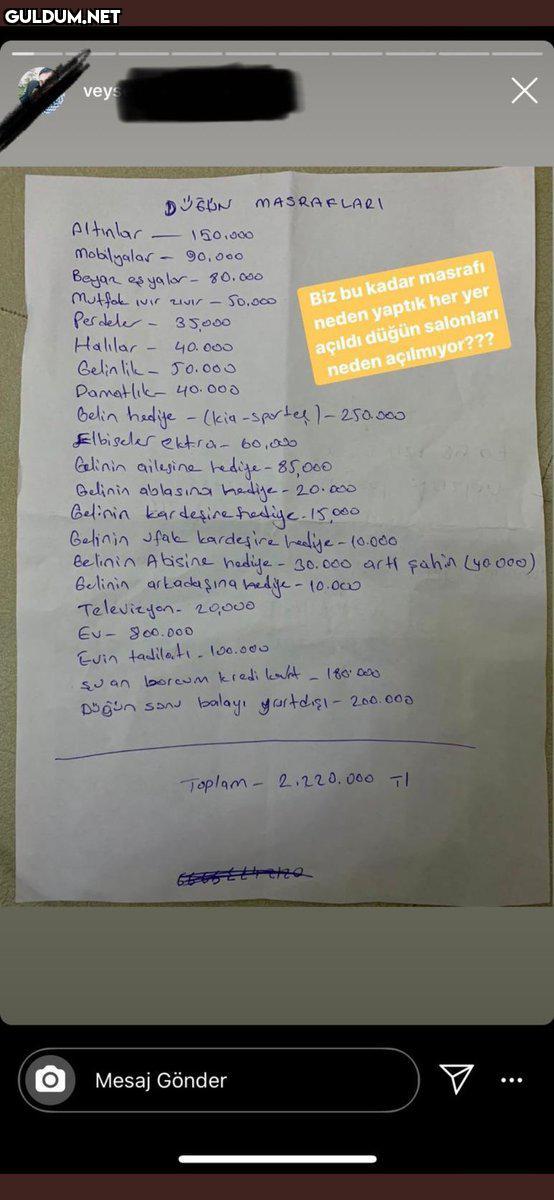 GULDUM.NET
veys
DÜĞÜN MASRAFLARI
Altınlar — 150.000
Mobilyalar – 90.000
Beyaz eşyalar – 80.000
Mutfak ıvır zıvır – 50.000
Perdeler – 35,000
Halılar – 40.000
Gelinlik – 50.000
Damatlık – 40.000
Gelin hediye – (kia-sporteş) – 250.000
Elbiseler ektra – 60,000
Gelinin ailesine hediye – 85,000
Gelinin ablasına hediye – 20.000
Gelinin kardeşine hediye – 15,000
Gelinin ufak kardeşine hediye – 10.000
Gelinin Abisine hediye – 30.000 artı şahin (40.000)
Gelinin arkadaşına hediye – 10.000
Televizyon – 20,000
Ev – 800.000
Evin tadilatı – 100.000
şuan borcum kredi kart – 180.000
Düğün sonu balayı yurtdışı – 200.000
Toplam – 2.220.000 Tl
Biz bu kadar masrafı
neden yaptık her yer
açıldı düğün salonları
neden açılmıyor???
Mesaj Gönder